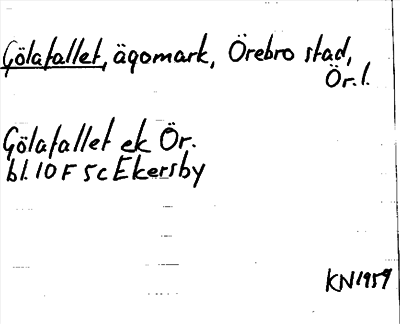 Gölafallet, ägomark, Örebro stad,
Ör.l.
Gölafallet ek Ör.
bl. 10 F 5 c Ekersby
KN 1959